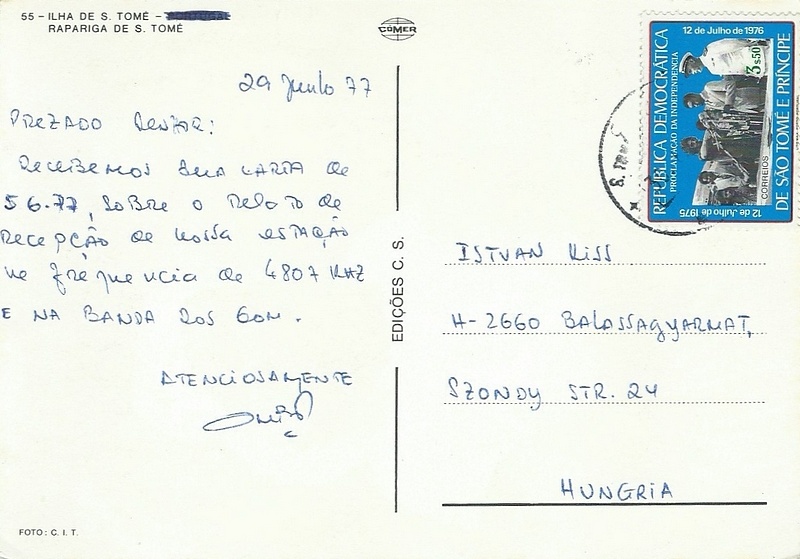 55 – ILHA DE S. TOMÉ –
RAPARIGA DE S. TOMÉ
CÓMER
29 Junho 77
PREZADO SENHOR:
RECEBEMOS SUA CARTA DE
5 6.77, SOBRE O RELATO DE
RECEPÇÃO DE NOSSA ESTAÇÃO
NE FRÉQUENCIA DE 4807 KHZ
E NA BANDA DOS 60M.
ATENCIOSAMENTE
FOTO: C. I. T.
EDIÇÕES C. S.
12 de Julho de 1976
3$50
REPÚBLICA DEMOCRÁTICA
PROCLAMAÇÃO DA INDEPENDENCIA
DE SÃO TOMÉ E PRÍNCIPE
CORREIOS
12 de Julho de 1975
ISTVAN KISS
H-2660 BALASSAGYARMAT,
SZONDY STR. 24
HUNGRIA